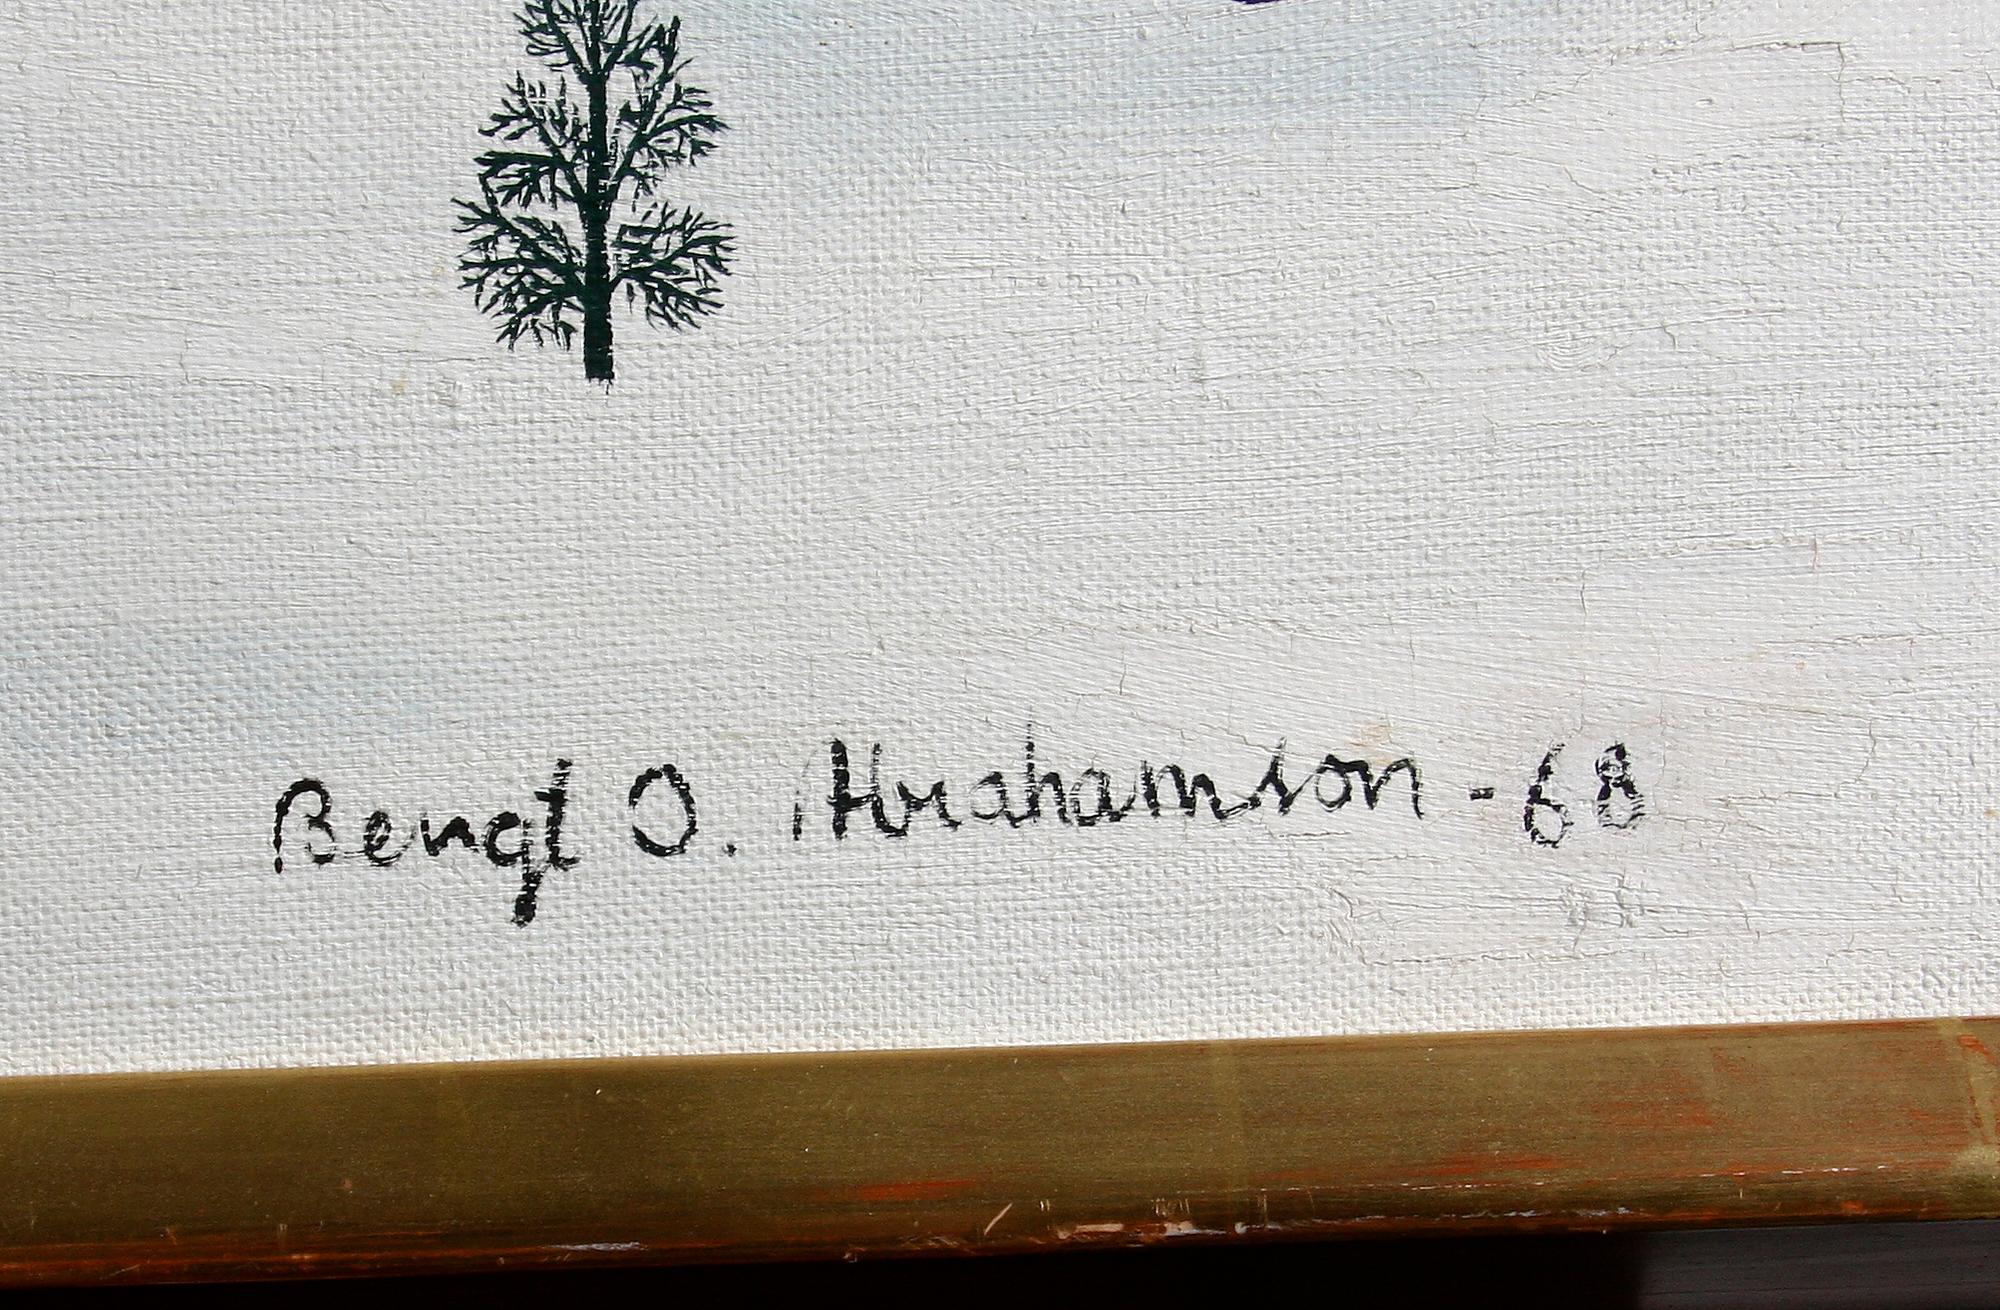 Bengt O. Abrahamson -68